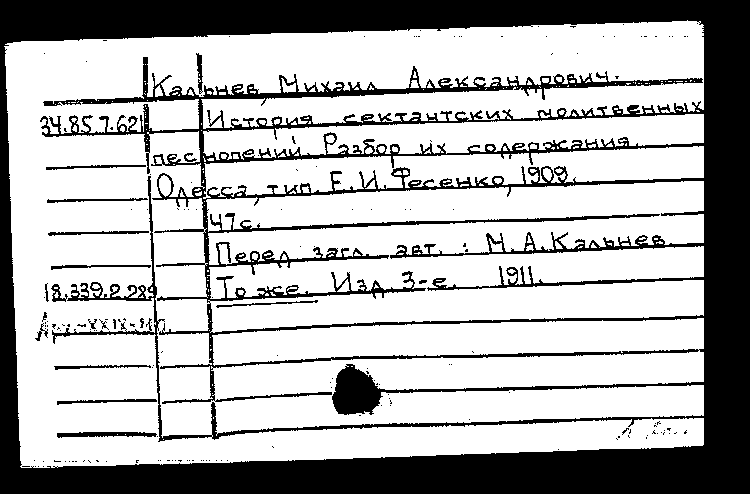 Кальнев, Михаил Александрович.
34.85.7.621. История сектантских молитвенных
песнопений. Разбор их содержания.
Одесса, тип. Е. И. Фесенко, 1909.
47 с.
Перед загл. авт. : М. А. Кальнев.
18.339.2.289. То же. Изд. 3-е. 1911.